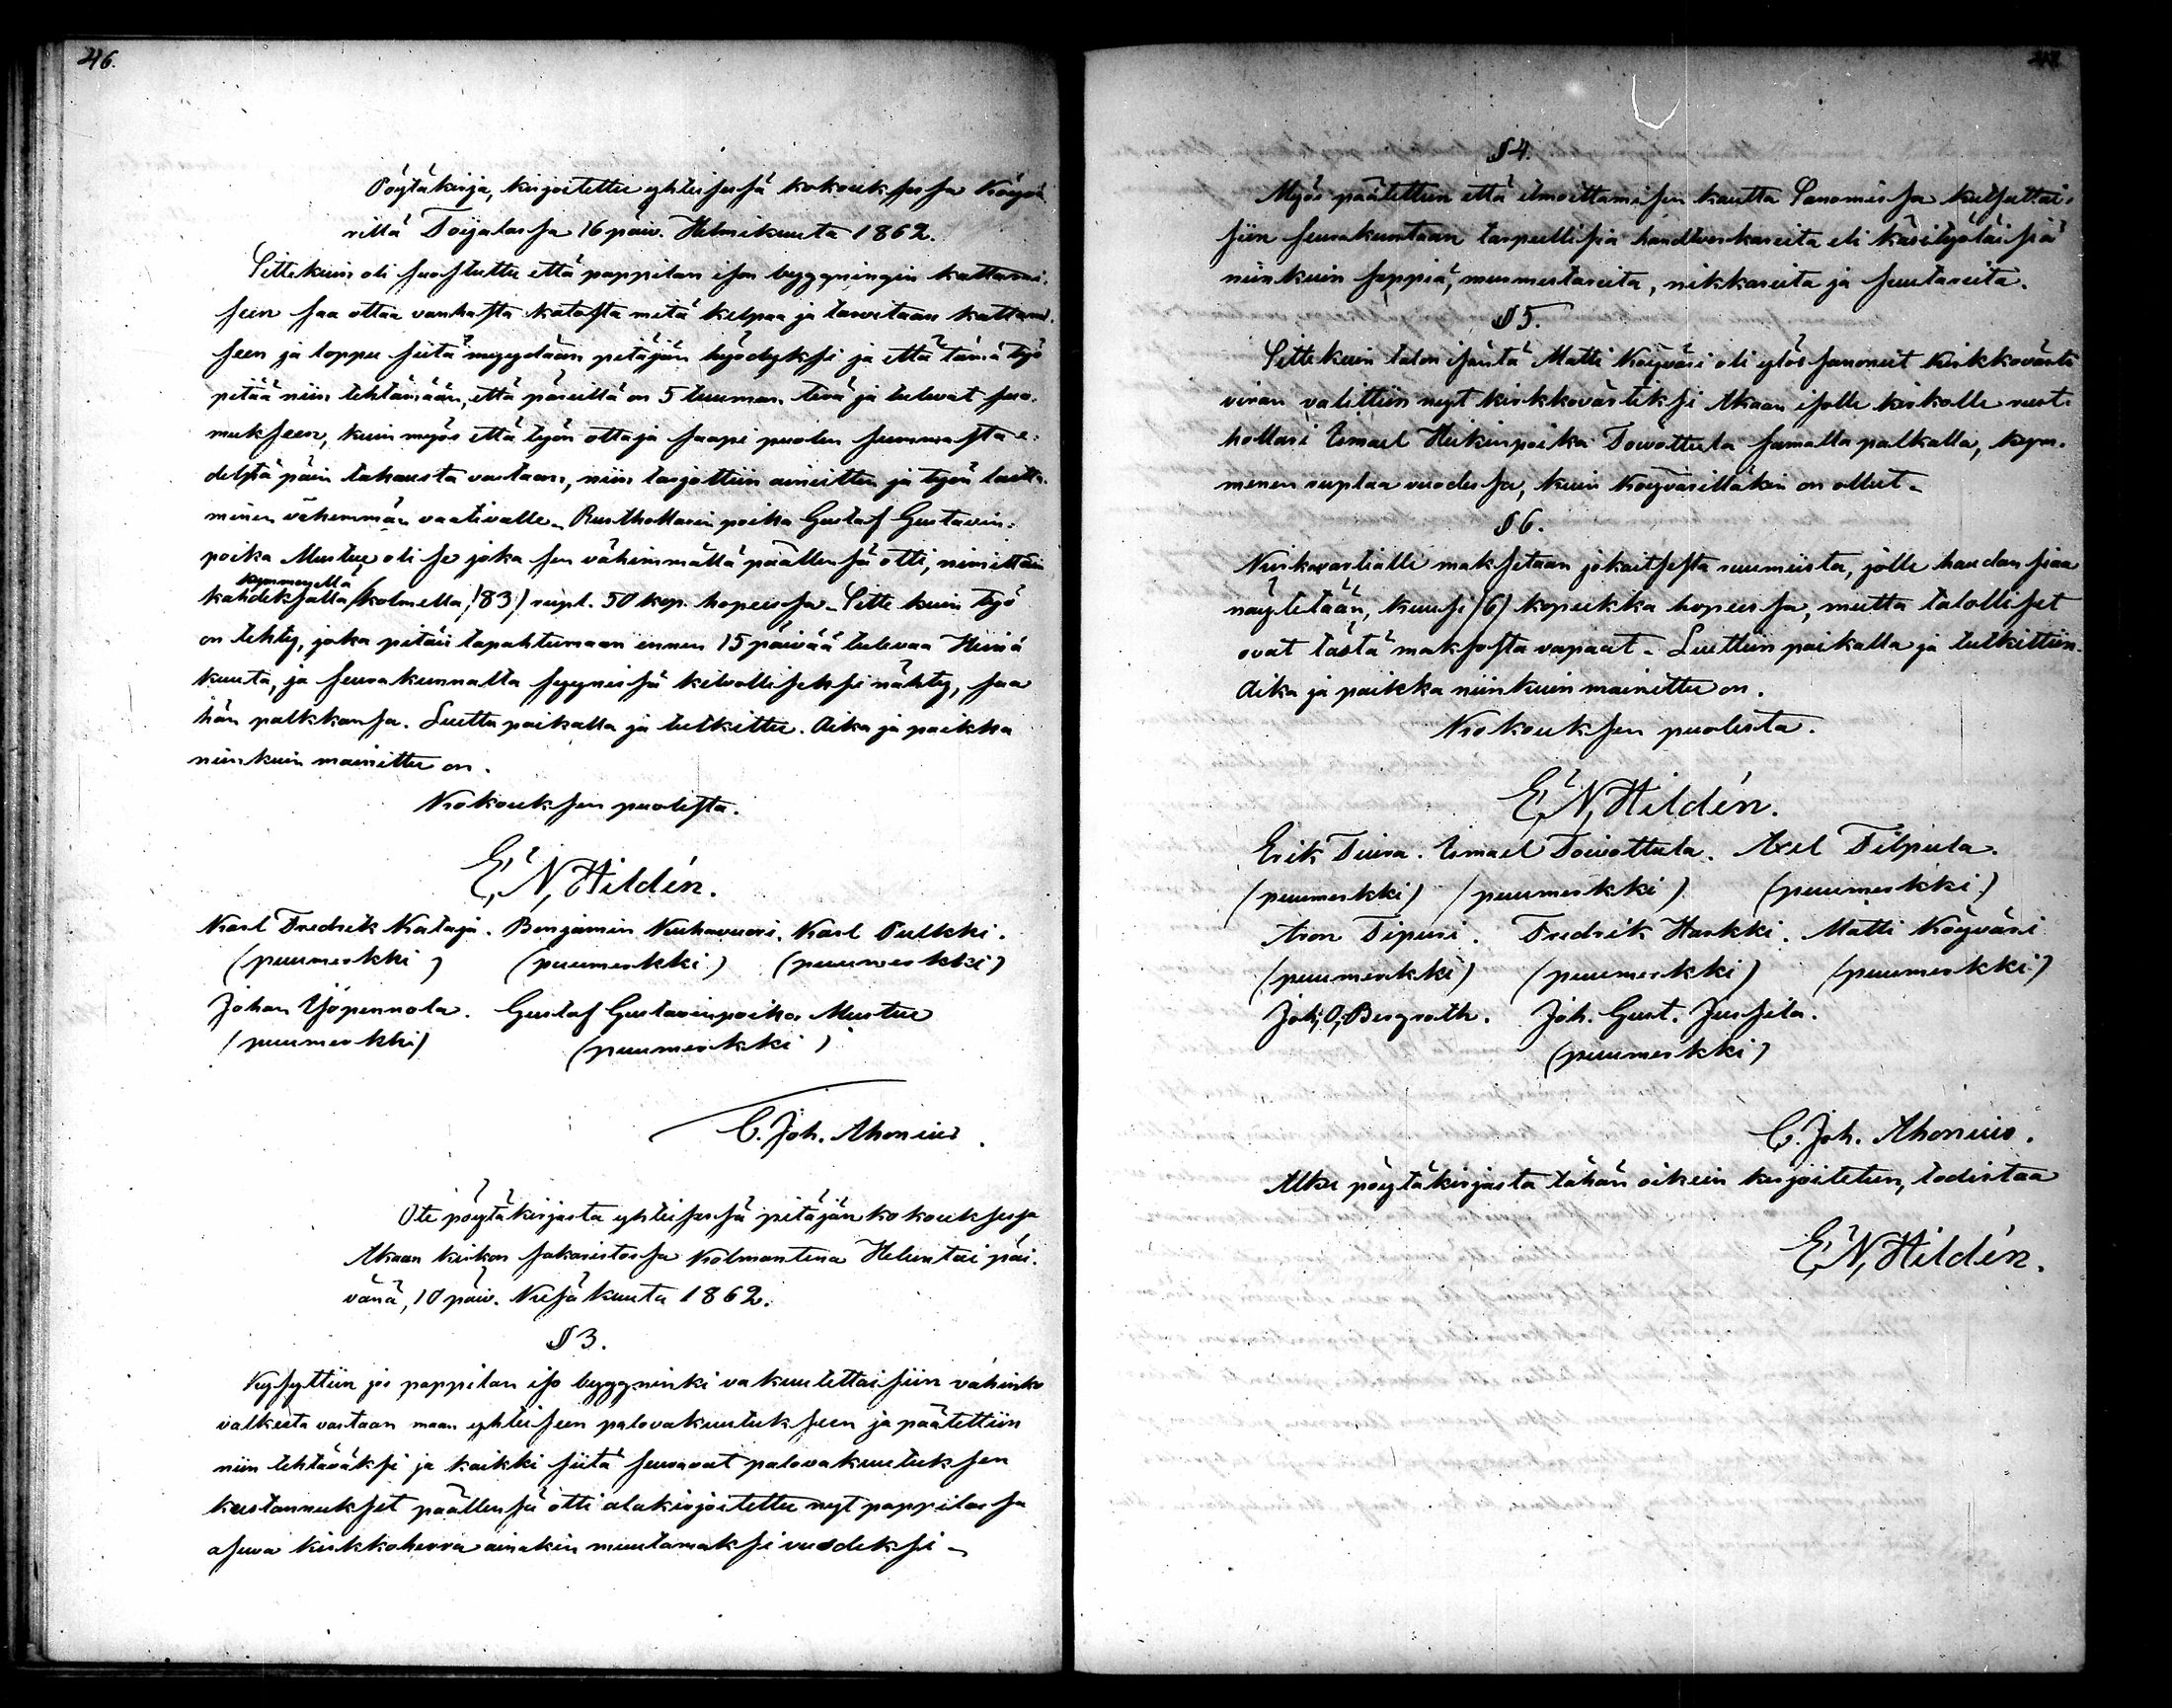 46.
Pöytäkirja, kirjoitettu yhteisessä kokouksessa Köyvä
rillä Toijalassa 16 päiv. Helmikuuta 1862.
Sittekuin oli suostuttu että pappilan ison byggningin kattami-
seen saa ottaa vanhasta katosta mitä kelpaa ja tarvitaan kattami-
seen ja loppu siitä myydään pitäjän hyödyksi ja että tämä työ
pitää niin tehtämään, että päreillä on 5 tuuman terä ja tulevat suo-
mukseen, kuin myös että työn ottaja saapi puolen summasta e-
deltä päin takausta vastaan, niin tarjottiin aineitten ja työn teet-
minen vähemmän vaativalle. Rusthollarin poika Gustaf Gustavin-
poika Mustue oli se joka sen vähimmällä päällensä otti, nimittäin
kymmenellä
kahdeksalla kolmella /83/ rupl. 50 kop. hopeassa. Sitte kuin työ
on tehty, joka pitäis tapahtumaan ennen 15 päivää tulevaa Heinä
kuuta, ja seurakunnalta syynissä kelvolliseksi nähty, saa
hän palkkansa. Luettu paikalla ja tutkittu. Aika ja paikka
niinkuin mainittu on.
Kokouksen puolesta.
E, N, Hildén.
Karl Fredrik Kataja. Benjamin Kuhavuori. Karl Pulkki.
(puumerkki) (puumerkki) (puumerkki)
Johan Yöpennola. Gustaf Gustavinpoika Mustue
(puumerkki) (puumerkki)
C. Joh. Ahonius.
Ote pöytäkirjasta yhteisessä pitäjänkokouksessa
Akaan kirkon sakaristossa Kolmantena Heluntai päi-
vänä, 10 päiv. Kesäkuuta 1862.
§ 3.
Kysyttiin jos pappilan iso byggninki vakuutettaisiin vahinko
valkeata vastaan maan yhteiseen palovakuutukseen ja päätettiin
niin tehtäväksi ja kaikki siitä seuraavat palovakuutuksen
kustannukset päällensä otti alakirjoitettu nyt pappilassa
asuva kirkkoherra ainakin muutamaksi vuodeksi.
§ 4.
Myös päätettiin että ilmoittamisen kautta Sanomissa kutsuttai-
siin seurakuntaan tarpeellisia handtverkareita eli käsityöläisiä
niinkuin seppiä, murmestareita, nikkareita ja suutareita.
§ 5.
Sittekuin talon isäntä Matti Köyväri oli ylös sanonut Kirkkovärti
viran valittiin nyt kirkkovärtiksi Akaan isolle kirkolle rust-
hollari Ismael Heikinpoika Towottula samalla palkalla, kym-
menen ruplaa vuodessa, kuin Köyvärilläkin on ollut.
§ 6.
Kirkovartialle maksetaan jokaitsesta ruumiista, jolle haudan siaa
näytetään, kuusi /6/ kopeekka hopeassa, mutta talolliset
ovat tästä maksosta vapaat. Luettiin paikalla ja tutkittiin.
Aika ja paikka niinkuin mainittu on.
Kokouksen puolesta.
E, N, Hildén.
Erik Tiura. Ismael Toivottula. Axel Tilpula.
(puumerkki) (puumerkki) (puumerkki)
Aron Tipuri. Fredrik Harkki. Matti Köyväri
(puumerkki) (puumerkki) (puumerkki)
Joh, O, Bergroth. Joh. Gust. Jussila.
(puumerkki)
C. Joh. Ahonius.
Alku pöytäkirjasta tähän oikein kirjoitetun, todistaa
E, N, Hildén.